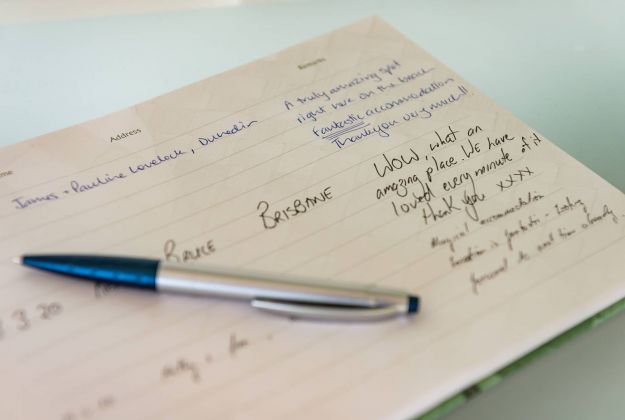 Address
Remarks
James + Pauline Lovelock, Dunedin
A truly amazing spot
right here on the beach.
Fantastic accommodation
Thankyou very much!!
BRUCE
BRISBANE
WOW, what an
amazing place. We have
loved every minute of it
thank you xxxx
Magical accommodation
location is fantastic - looking
forward to next time already
3.20